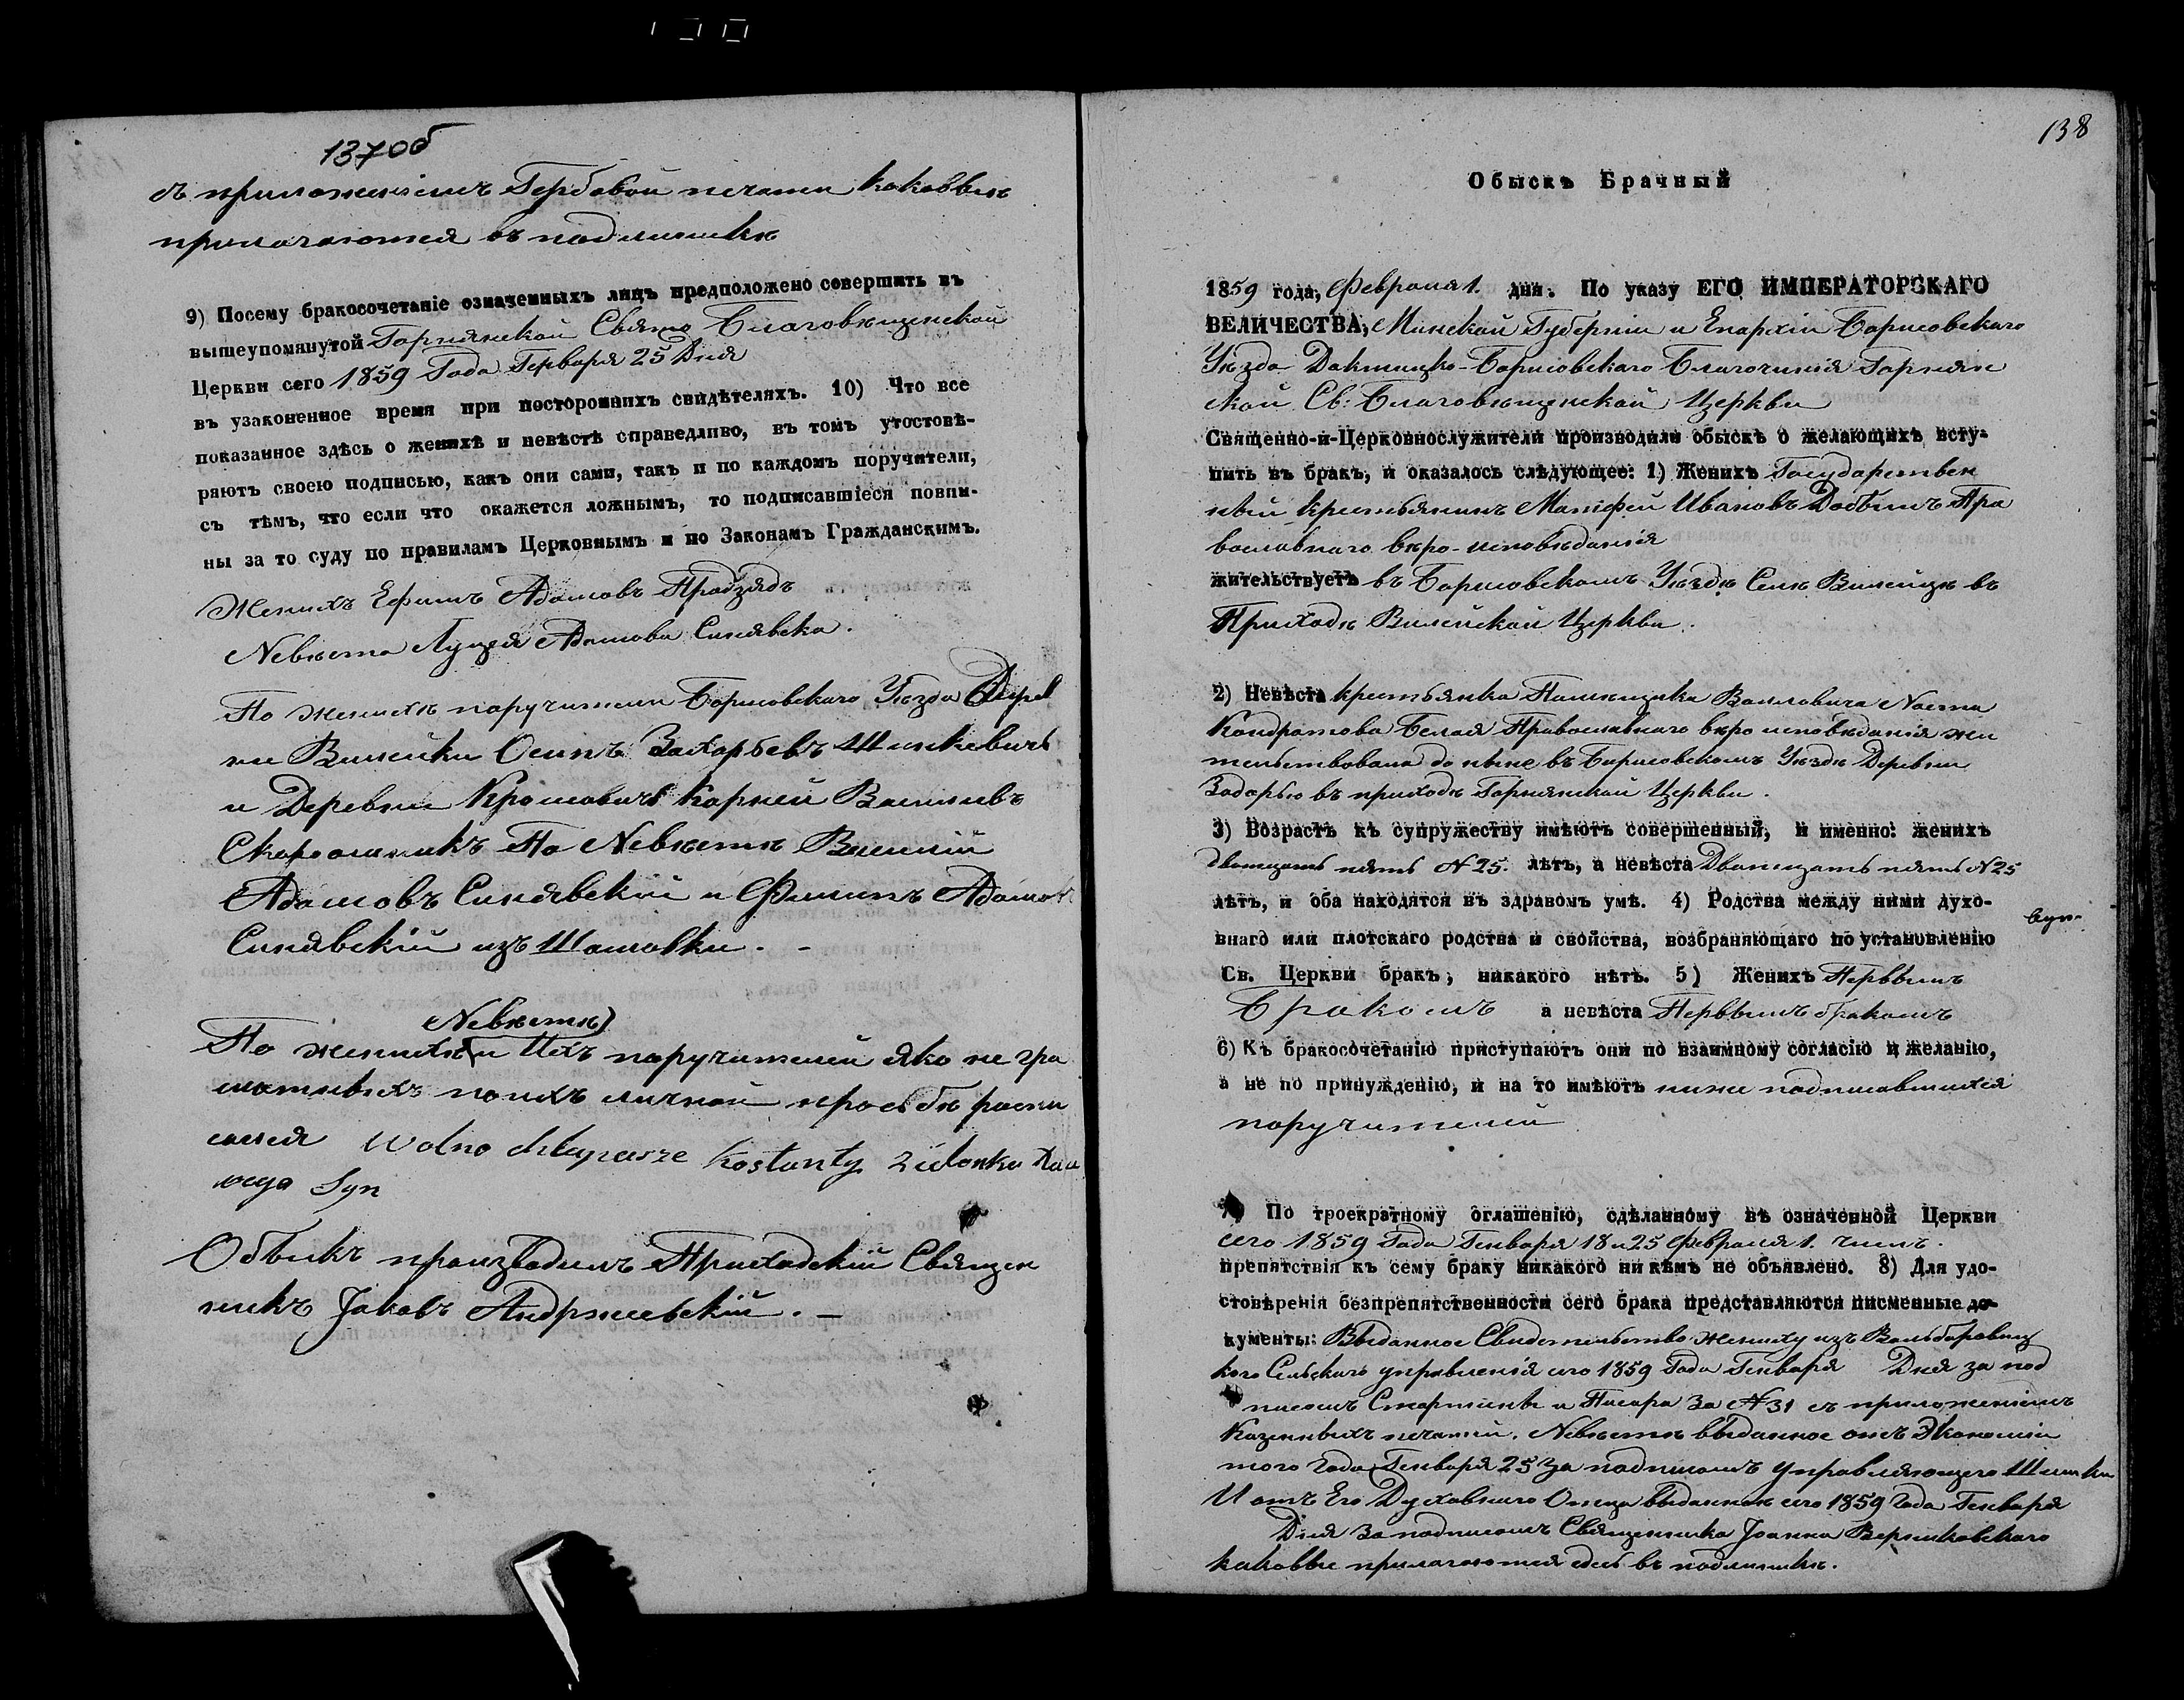 137об
съ приложеніемъ Гербовой печати каковые
прилагаются въ подлинникѣ
9) Посему бракосочетаніе означенныхъ лицъ предположено совершить въ
вышеупомянутой Горнянской Свято Благовѣщенской
Церкви сего 1859 Года Генваря 25 Дня
въ узаконенное время при постороннихъ свидѣтеляхъ. 10) Что все
показанное здѣсь о женихѣ и невѣстѣ справедливо, въ томъ утостовѣ-
ряютъ своею подписью, какъ они сами, такъ и по каждомъ поручители,
съ тѣмъ, что если что окажется ложнымъ, то подписавшіеся повин-
ны за то суду по правиламъ Церковнымъ и по Законамъ Гражданскимъ.
Женихъ Ефимъ Адамовъ Прадзядъ
Nевѣста Луцея Адамова Синявска.
По женихѣ поручители Борисовскаго Уѣзда Дерев
ни Вилейки Осипъ Захарьевъ Шинкевичъ
и Деревни Крошовичъ Карней Васильевъ
По Nевѣстѣ Василій
Адамовъ Синявскій и Филипъ Адамов
Синявскій изъ Шамовки. -
Nевѣстѣ
По женихѣ и Ихъ поручителей яко не гра
мотныхъ поихъ личной просьбѣ распи
сался Wolno Kostanty
Syn
Обыскъ производилъ Приходскій Священ
никъ Jаковъ Андржіевскій. —
138
Обыскъ Брачный
1859 года, Февраля 1. дня. По указу ЕГО ИМПЕРАТОРСКАГО
ВЕЛИЧЕСТВА, Минской Губерніи и Епархіи Борисовскаго
Уѣзда Докшицко-Борисовскаго Благочинія Горнян
ской Св: Благовѣщенской Церкви
Священно-и-Церковнослужители производили обыскъ о желающихъ всту-
пить въ бракъ, и оказалось слѣдующее: 1) Женихъ Государствен
ный крестьянинъ Матфей Ивановъ Пра
вославнаго вѣро-исповѣданія
жительствуетъ въ Борисовскомъ Уѣздѣ Селѣ Вилейцѣ въ
Приходѣ Вилейской Церкви.
2) Невѣста крестьянка Помѣщика Nаста
Кондратова Белая Православнаго вѣро исповѣданія жи
тельствовала до нынѣ въ Борисовскомъ Уѣздѣ Деревни
Задорью въ приходѣ Горнянской Церкви.
3) Возрастъ къ супружеству имѣютъ совершенный, и именно: женихъ
дватцать пять N 25. лѣтъ, а невѣста Дватцать пять N 25
лѣтъ, и оба находятся въ здравомъ умѣ. 4) Родства между ними духо-
внаго или плотскаго родства и свойства, возбраняющаго по установленію
Св. Церкви бракъ, никакого нѣтъ. 5) Женихъ Первымъ
Бракомъ а невѣста Первымъ бракомъ
6) Къ бракосочетанію приступаютъ они по взаимному согласію и желанію,
а не по принужденію, и на то имѣютъ ниже подписавшихся
поручителей
7) По троекратному оглашенію, сдѣланному въ означенной Церкви
сего 1859 Года Генваря 18 и 25 Февраля 1. числ.
препятствія къ сему браку никакого ни кѣмъ не объявлено. 8) Для удо-
стовѣренія безпрепятственности сего брака представляются писменные до-
кументы: Выданное Свидетельство жениху изъ
кого Сельскаго управленія сего 1859 Года Генваря Дня за под
писомъ Старшины и Писара За N 31 съ приложеніемъ
Казенныхъ печатей. Nевѣстѣ выданное отъ Экономіи
того Года Генваря 25 За подписомъ управляющего
И отъ Его Духовнаго Отца выданное сего 1859 Года Генваря
Дня За подписомъ Священника Jоанна Вержиковскаго
каковые прилагаются здесь въ подлинникѣ.